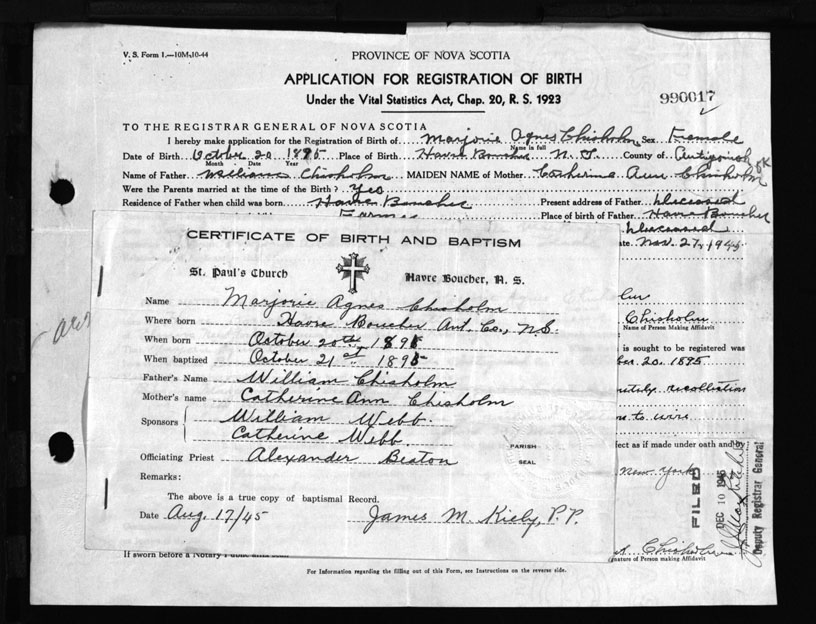 V. S. Form 1.—10M-10-44
PROVINCE OF NOVA SCOTIA
APPLICATION FOR REGISTRATION OF BIRTH
Under the Vital Statistics Act, Chap. 20, R. S. 1923
990017
TO THE REGISTRAR GENERAL OF NOVA SCOTIA
I hereby make application for the Registration of Birth of Marjorie Agnes Chisholm Sex Female
Name in full
Date of Birth October 20 1895 Place of Birth Havre Boucher N. S. County of Antigonish
Month Date Year
Name of Father William Chisholm MAIDEN NAME of Mother Catherine Ann Chisholm
Were the Parents married at the time of the Birth? Yes
Residence of Father when child was born Havre Boucher Present address of Father Deceased
Farmer Place of birth of Father Havre Boucher
Deceased
Nov. 27, 1945
CERTIFICATE OF BIRTH AND BAPTISM
St. Paul's Church Havre Boucher, N. S.
Name Marjorie Agnes Chisholm
Where born Havre Boucher Ant. Co., N.S.
When born October 20th 1895
When baptized October 21st 1895
Father's Name William Chisholm
Mother's name Catherine Ann Chisholm
Sponsors William Webb.
Catherine Webb.
Officiating Priest Alexander Beaton
PARISH
SEAL
Remarks:
The above is a true copy of baptismal Record.
Date Aug. 17/45 James M. Kiely, P.P.
Chisholm
Name of Person Making Affidavit
is sought to be registered was
20. 1895
recollection
fect as if made under oath and by
New York
FILED
DEC 10 1945
Deputy Registrar General
If sworn before a Notary Public
Chisholm
Signature of Person making Affidavit
For Information regarding the filling out of this Form, see Instructions on the reverse side.